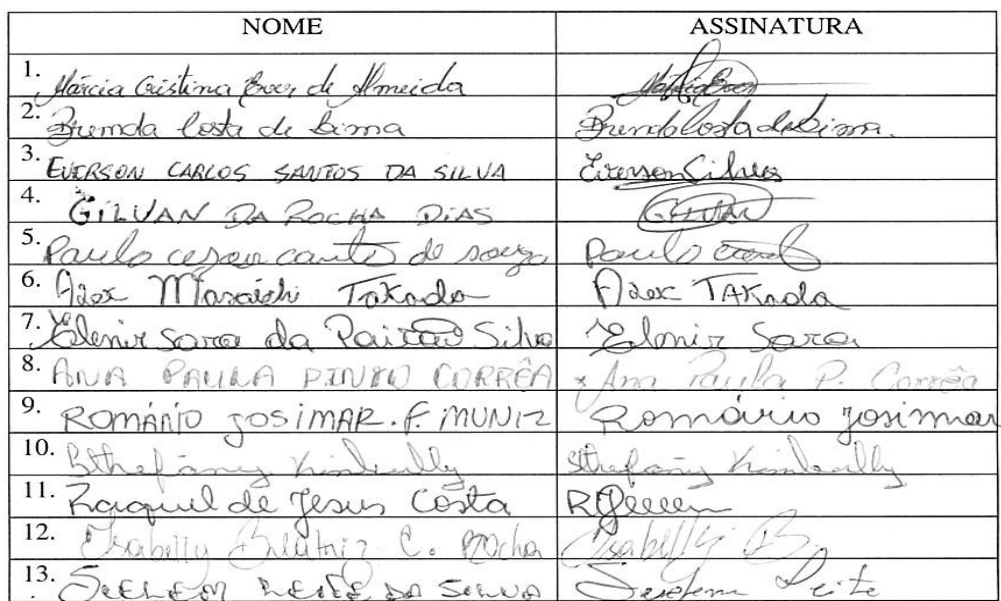 NOME ASSINATURA
1. Márcia Cristina Boer de Almeida Márcia Boer
2. Brenda Costa de Lima Brenda Costa de Lima.
3. EVERSON CARLOS SANTOS DA SILVA Everson Silva
4. GILVAN DA ROCHA DIAS GILVAN
5. Paulo cezar canto de souza Paulo
6. Alex Takada Alex TAKada
7. Elenir Sara da Paixão Silva Elenir Sara
8. ANA PAULA PINTO CORRÊA x Ana Paula P. Corrêa
9. ROMÁRIO JOSIMAR. F. MUNIZ Romário Josimar
10. Sthefany Kimberlly Sthefany Kimberlly
11. Raquel de Jesus Costa
12. Isabelly Beatriz C. Rocha Isabelly B.
13. SUELEM LEITE DA SILVA Suelem Leite